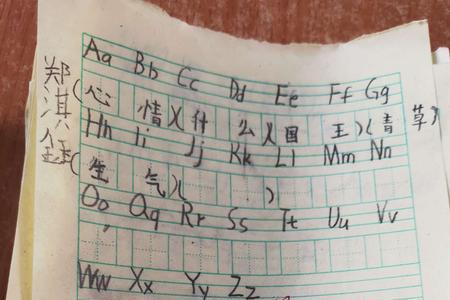 郑淇铥
Aa Bb Cc Dd Ee Ff Gg
(心情)(什么)(国王)(青草)
Hh Ii Jj Kk Ll Mm Nn
(生气)( )
Oo Qq Rr Ss Tt Uu Vv
Ww Xx Yy Zz